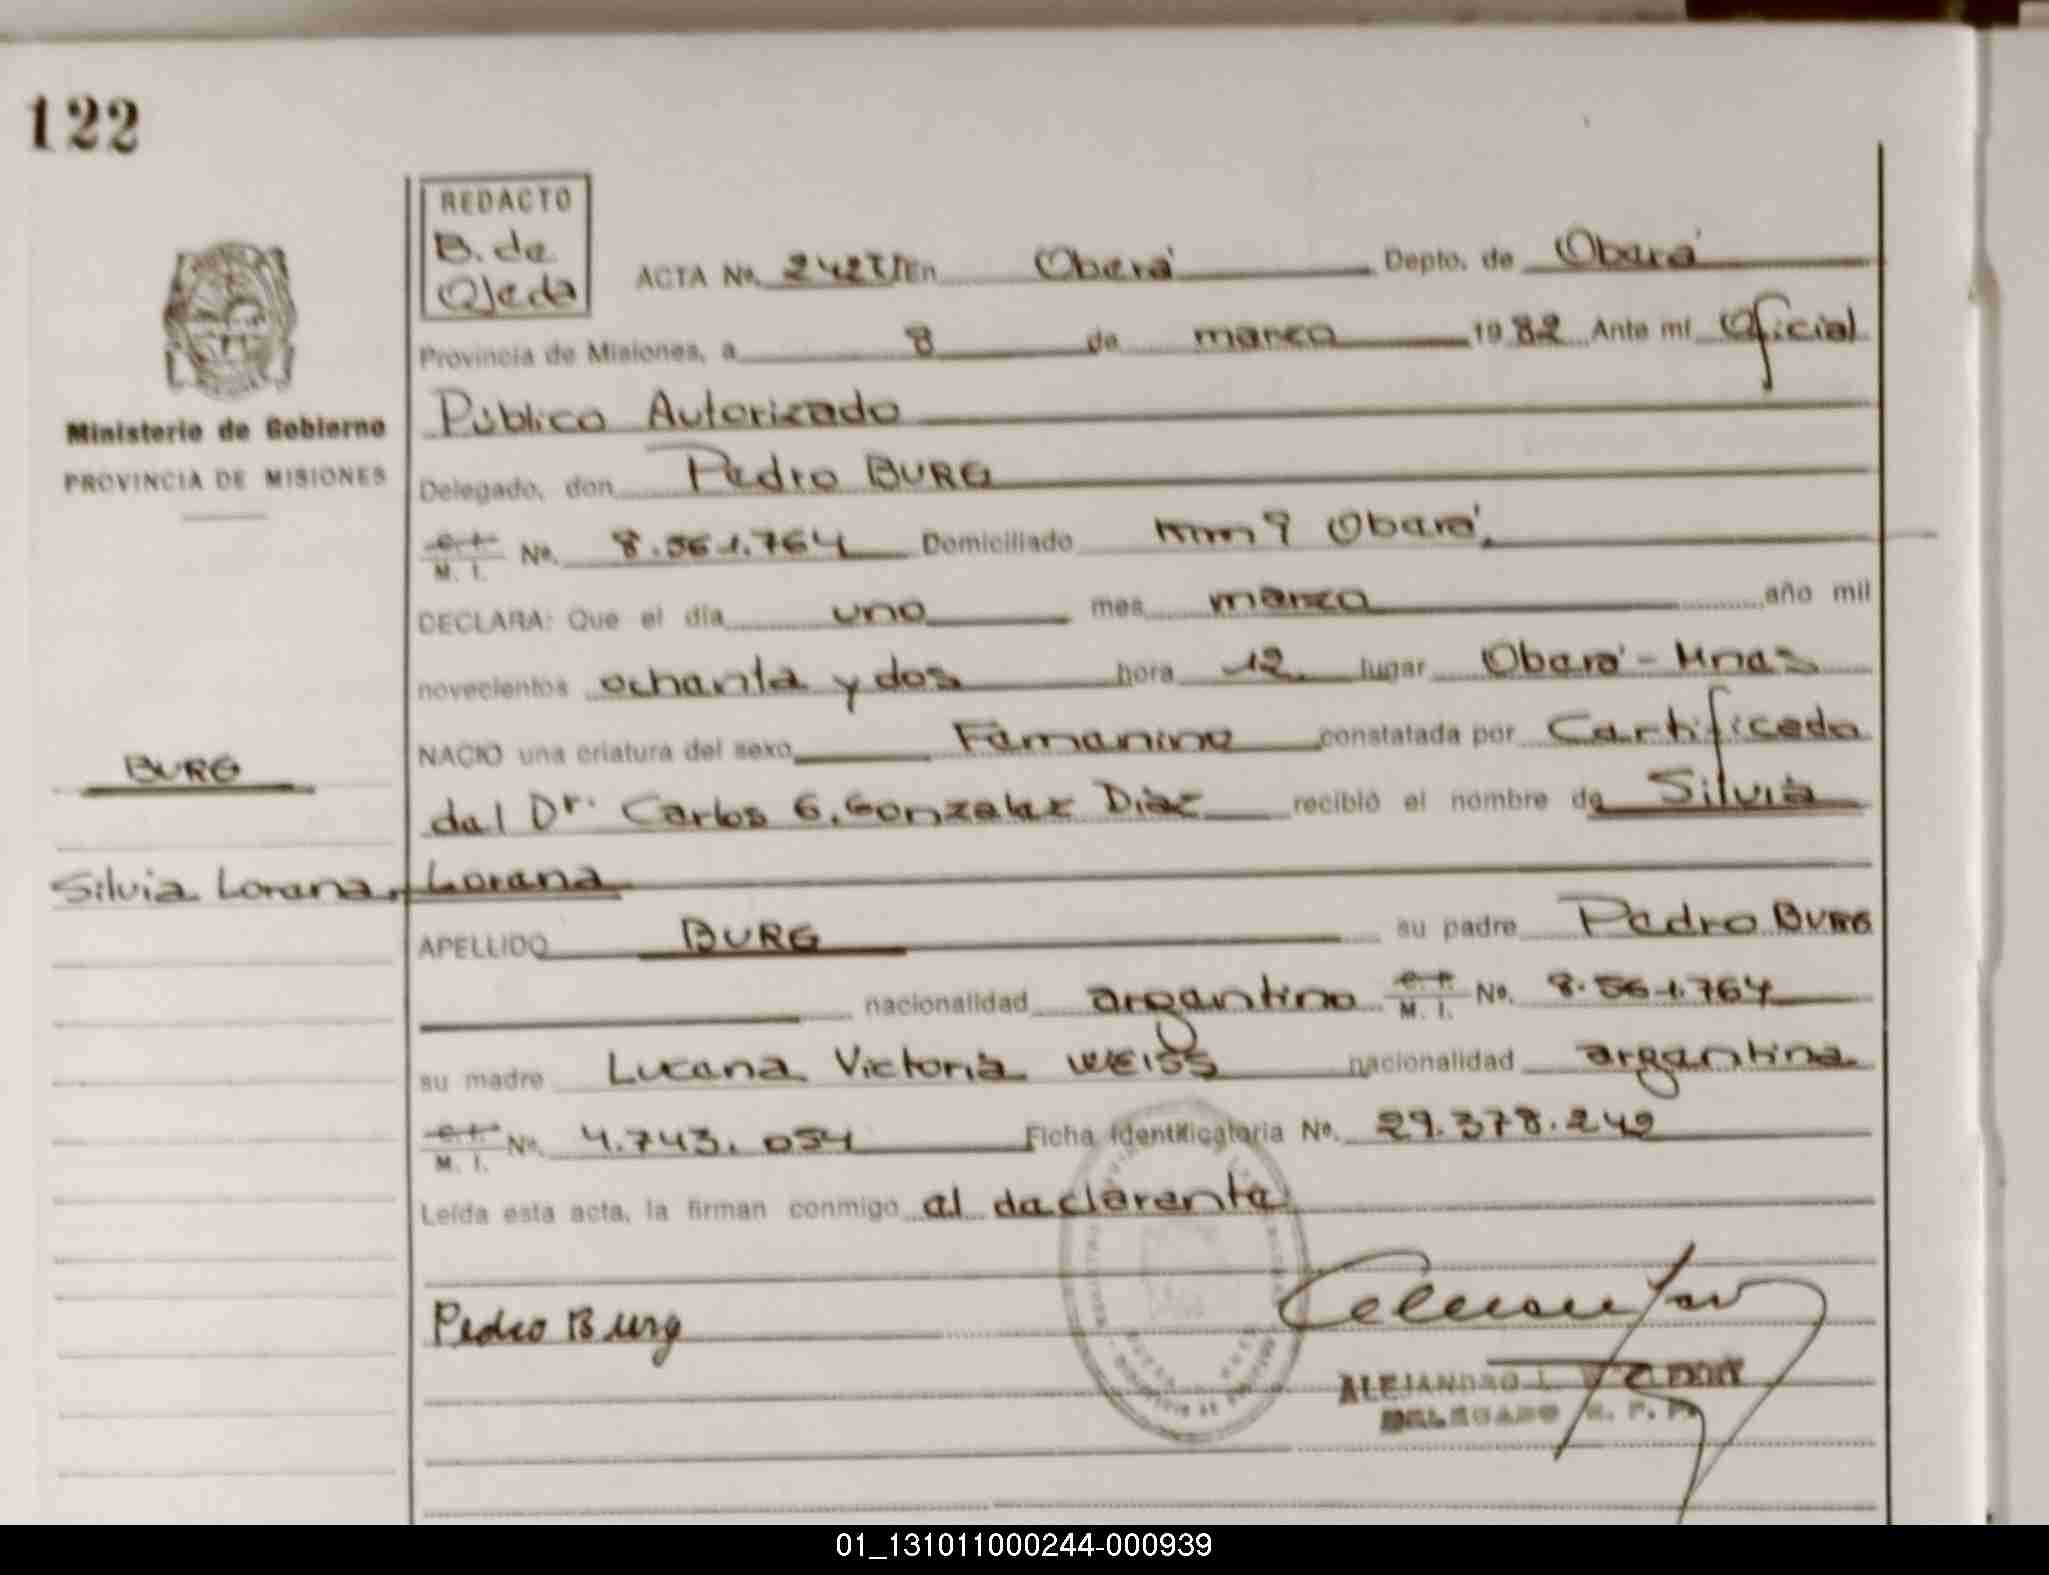 122
REDACTO
B. de
Ojeda
ACTA Nº. 242 En Oberá Depto. de Oberá
Provincia de Misiones, a 8 de marzo 1982 Ante mí Oficial
Público Autorizado
Ministerio de Gobierno
PROVINCIA DE MISIONES
Delegado, don Pedro BURG
M. I. Nº. 8.561.764 Domiciliado Km 9 Oberá.
DECLARA: Que el día uno mes marzo año mil
novecientos ochenta y dos hora 12. lugar Oberá - Mnes
NACIO una criatura del sexo Femenino constatada por Certificado
BURG
del Dr. Carlos G. Gonzalez Diaz recibió el nombre de Silvia
Silvia Lorena. Lorena
APELLIDO BURG su padre Pedro BURG
nacionalidad argentino M. I. Nº. 8.561.764
su madre Lucena Victoria WEISS nacionalidad argentina
M. I. Nº. 4.743.054 Ficha Identificatoria Nº. 29.378.249
Leída esta acta, la firman conmigo el declarante
Pedro Burg
ALEJANDRO L.
DELEGADO R. P. P.
01_131011000244-000939